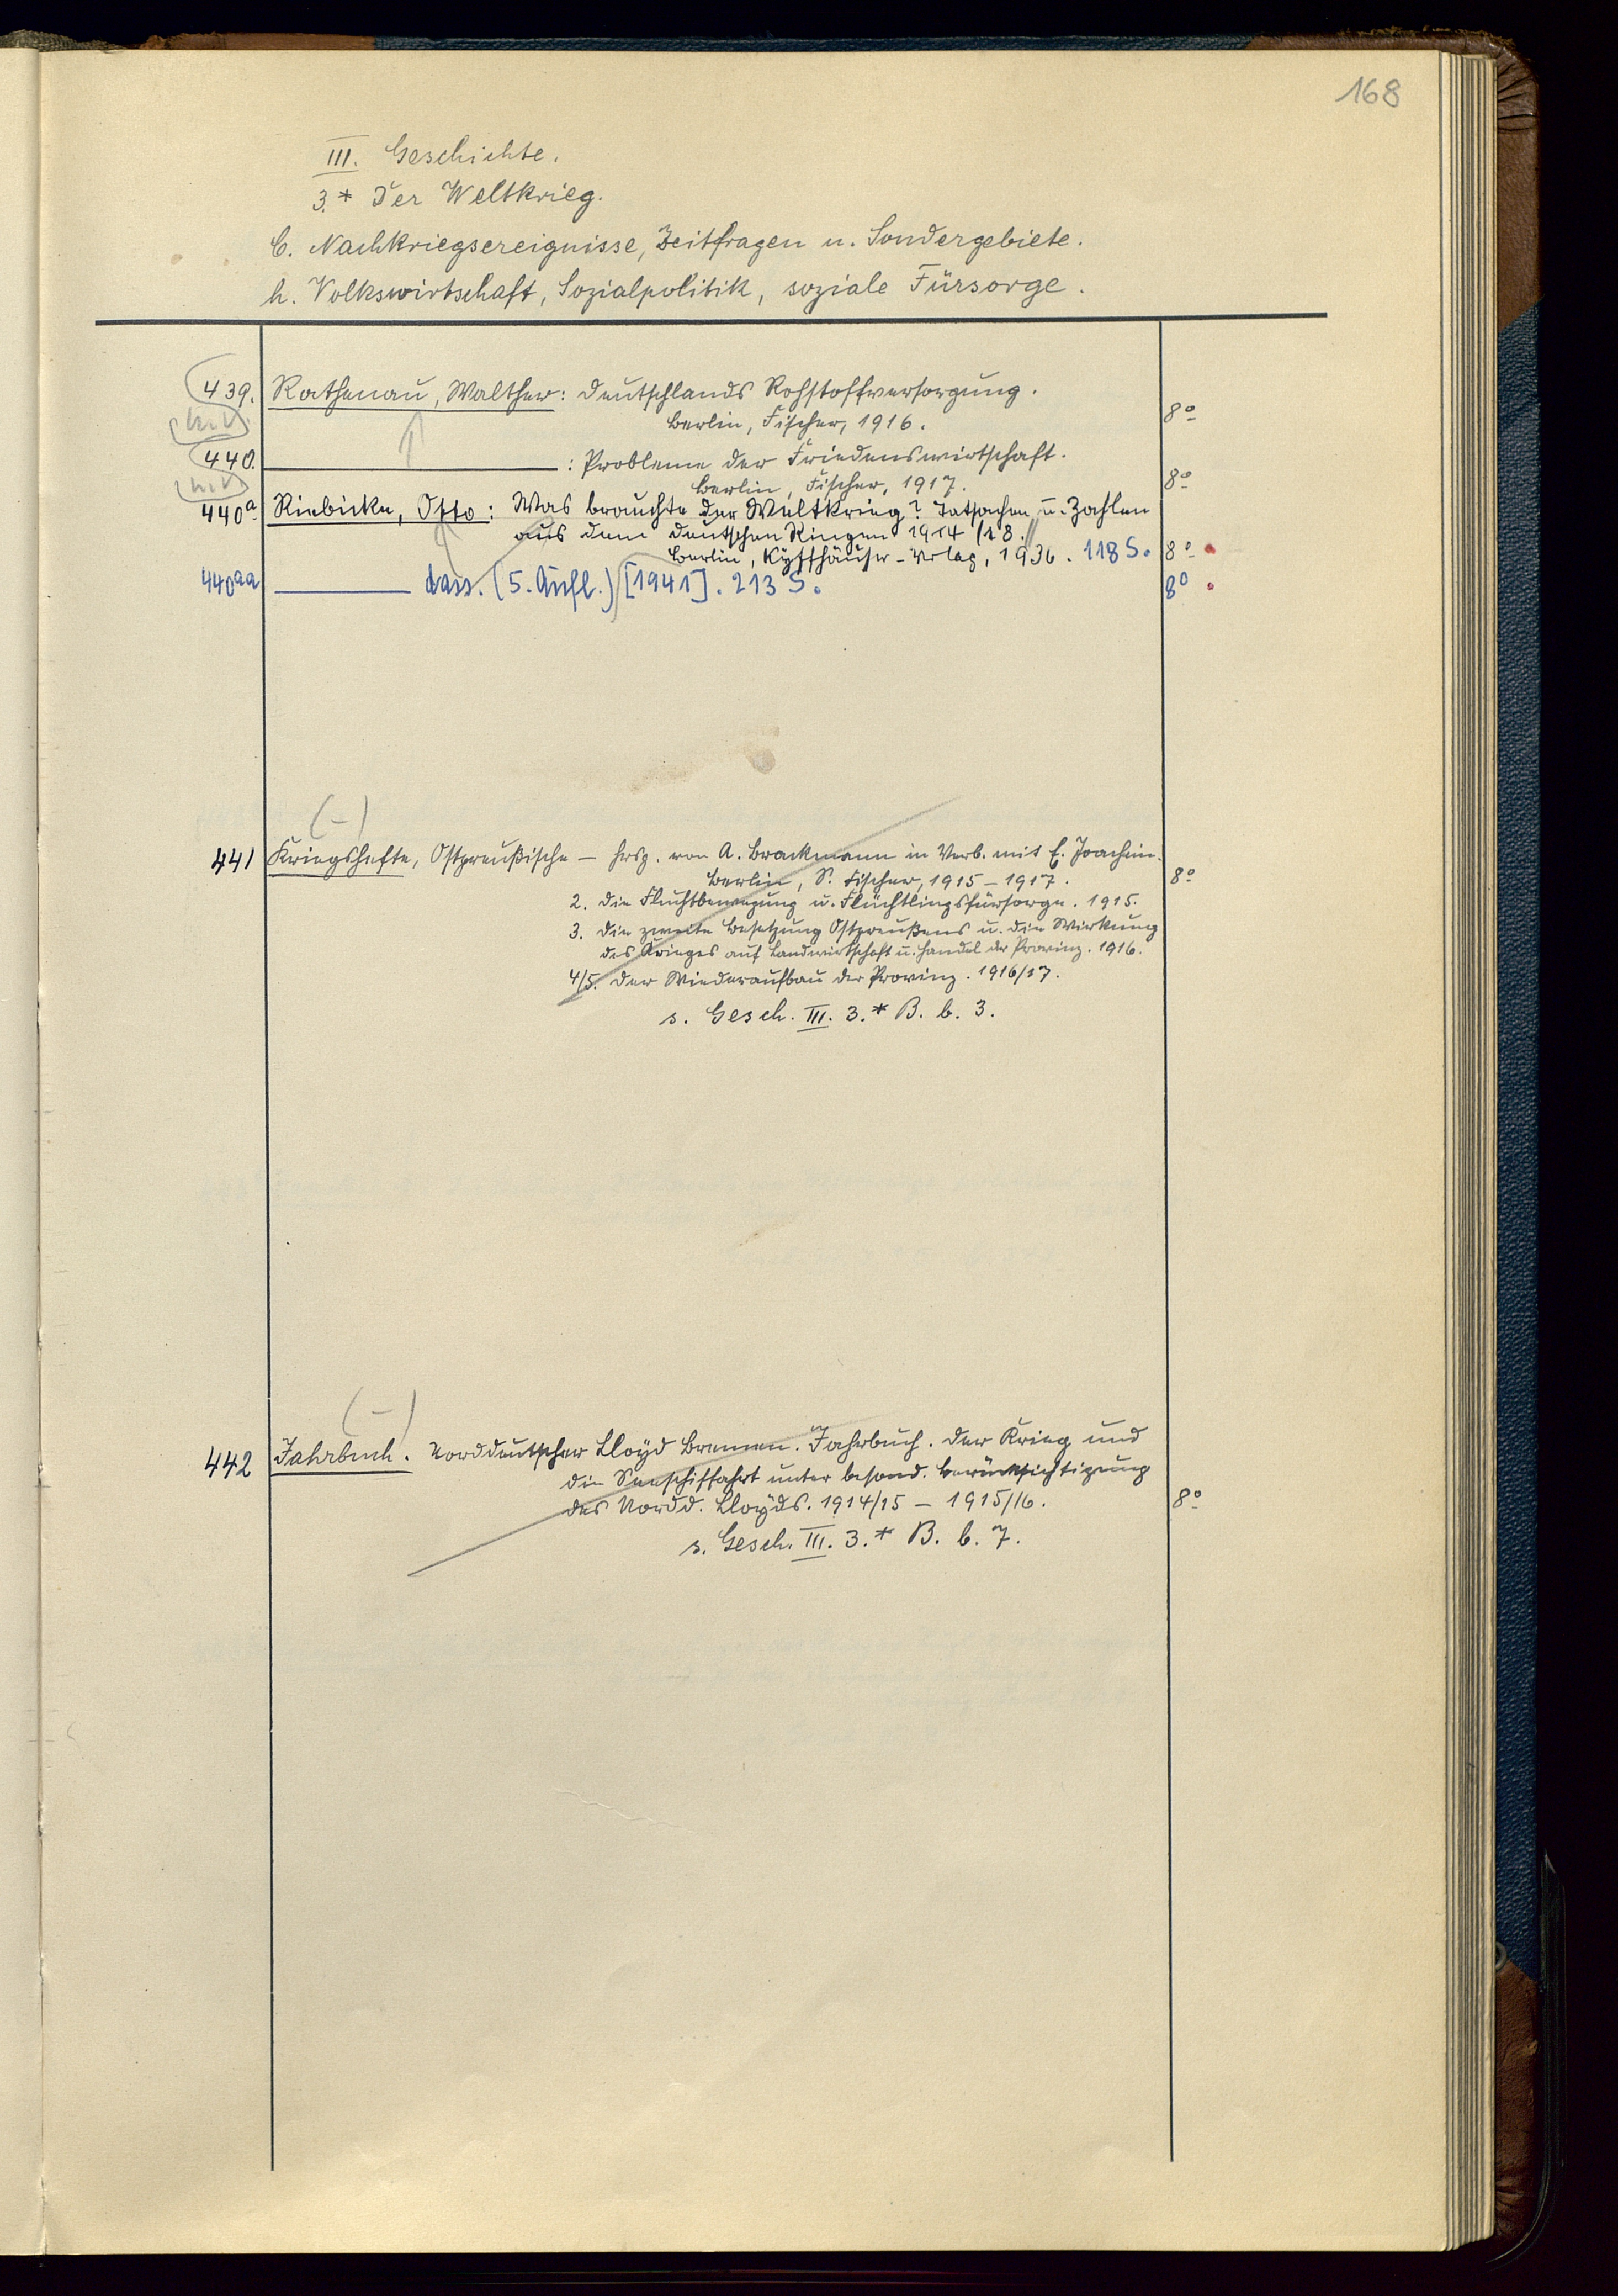 168
III. Geschichte.
3.* Der Weltkrieg.
C. Nachkriegsereignisse, Zeitfragen u. Sondergebiete.
h. Volkswirtschaft, Sozialpolitik, soziale Fürsorge.
439. Rathenau, Walther: Deutschlands Rohstoffversorgung.
Berlin, Fischer, 1916. 8°
440. ——— : Probleme der Friedenswirtschaft.
Berlin, Fischer, 1917. 8°
440a Riebicke, Otto: Was brauchte der Weltkrieg? Tatsachen u. Zahlen
aus dem deutschen Ringen 1914/18.
Berlin, Kyffhäuser-Verlag, 1936. 118 S. 8°
440aa ——— dass. (5. Aufl.) [1941]. 213 S. 8°
(-)
441 Kriegshefte, Ostpreußische — hrsg. von A. Brackmann in Verb. mit E. Joachim.
Berlin, S. Fischer, 1915-1917. 8°
2. Die Fluchtbewegung u. Flüchtlingsfürsorge. 1915.
3. Die zweite Besetzung Ostpreußens u. die Wirkung
des Krieges auf Landwirtschaft u. Handel der Provinz. 1916.
4/5. Der Wiederaufbau der Provinz. 1916/17.
s. Gesch. III. 3.* B. b. 3.
(-)
442 Jahrbuch. Norddeutscher Lloyd Bremen. Jahrbuch. Der Krieg und
die Seeschiffahrt unter besond. Berücksichtigung
des Nordd. Lloyds. 1914/15 - 1915/16. 8°
s. Gesch. III. 3.* B. b. 7.